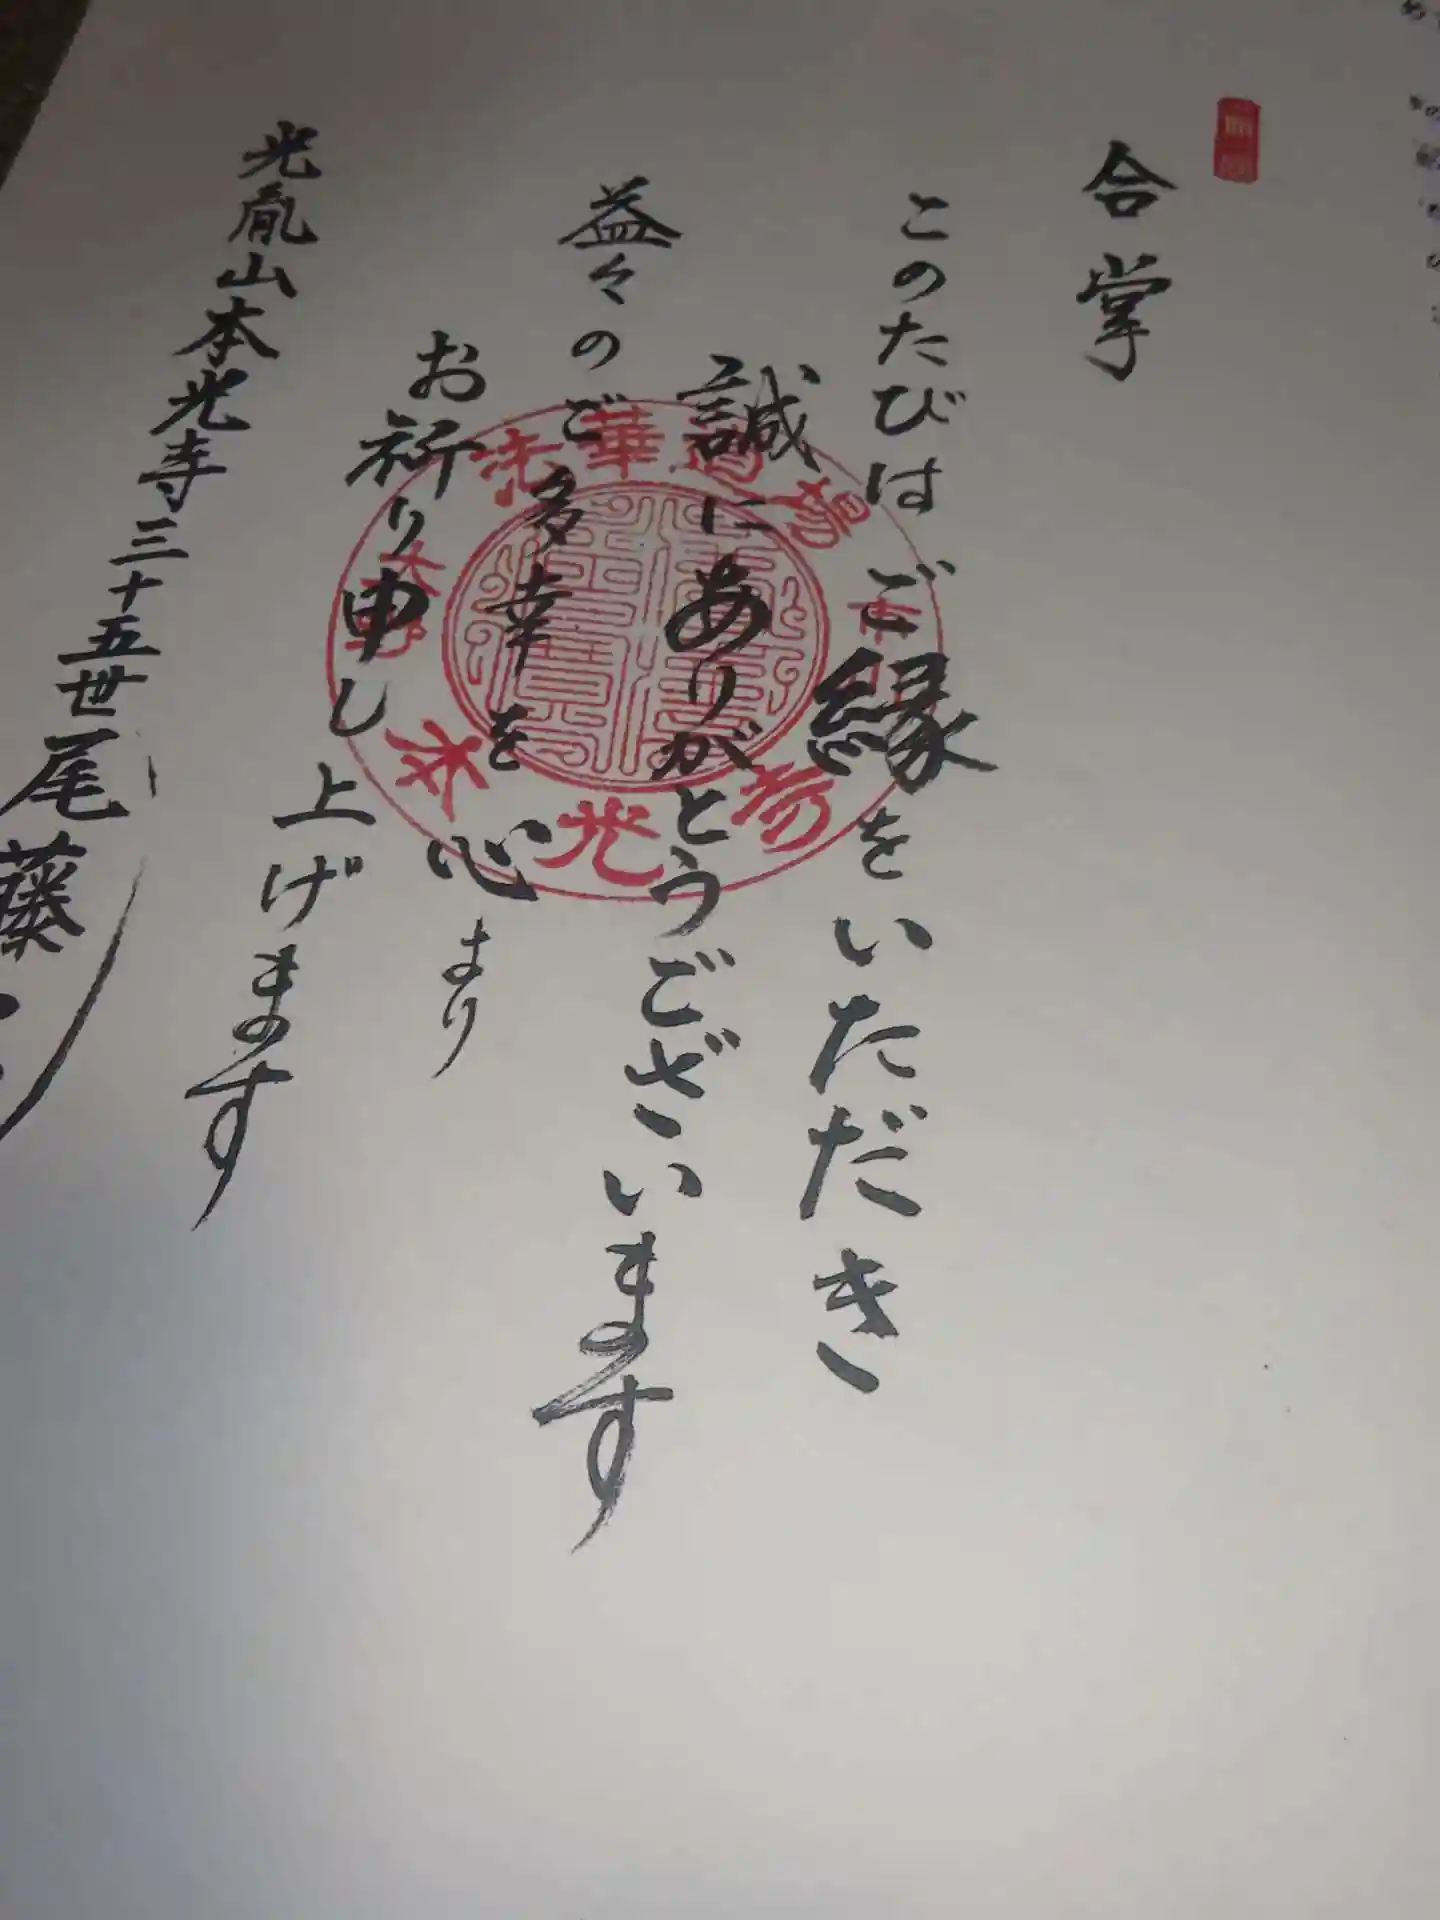 合掌
このたびはご縁をいただき
誠にありがとうございます
益々のご多幸を心より
お祈り申し上げます
光胤山本光寺三十五世尾藤